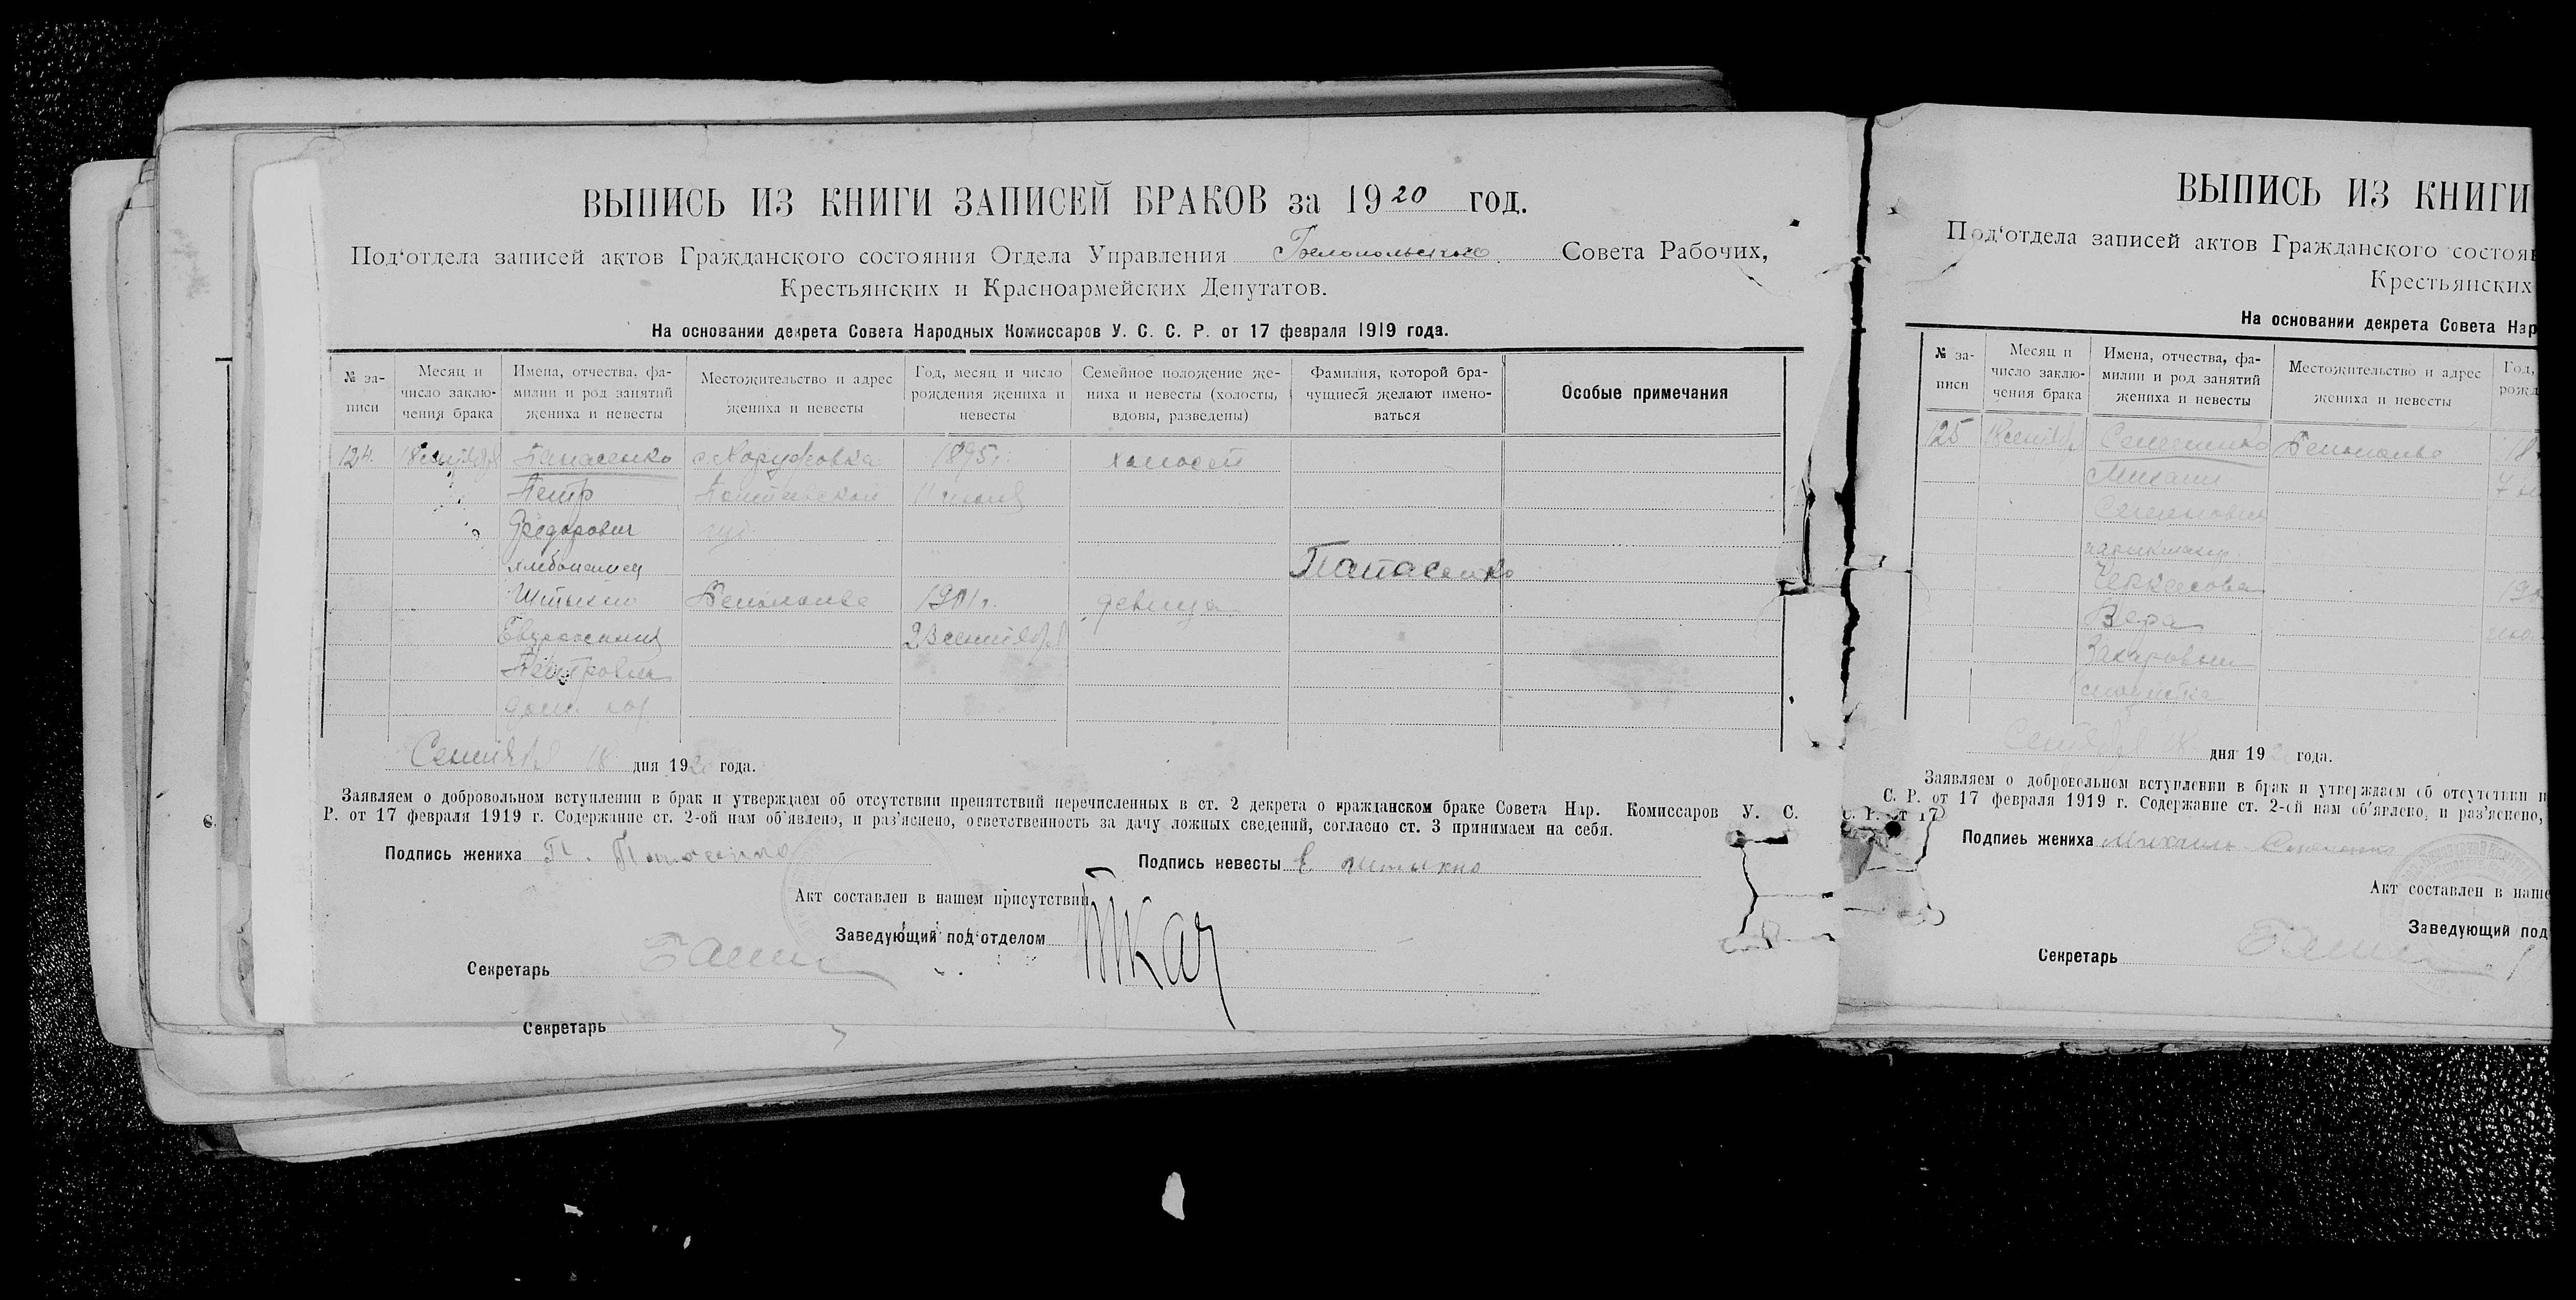 ВЫПИСЬ ИЗ КНИГИ ЗАПИСЕЙ БРАКОВ за 1920 год.
Под‘отдела записей актов Гражданского состояния Отдела Управления Белопольского Совета Рабочих,
Крестьянских и Красноармейских Депутатов.
На основании декрета Совета Народных Комиссаров У. С. С. Р. от 17 февраля 1919 года.
№ за-
писи
Месяц и
число заклю-
чения брака
Имена, отчества, фа-
милии и род занятий
жениха и невесты
Местожительство и адрес
жениха и невесты
Год, месяц и число
рождения жениха и
невесты
Семейное положение же-
ниха и невесты (холосты,
вдовы, разведены)
Фамилия, которой бра-
чущиеся желают имено-
ваться
Особые примечания
124. 18 сентября Панасенко с. 1895 г. холост
Петр 11
Федорович
хлебопашец Панасенко
Белополье 1901 г. девица
Евфросиния 23 сентября
Петровна
Сентября 18 дня 1920 года.
Заявляем о добровольном вступлении в брак и утверждаем об отсутствии препятствий перечисленных в ст. 2 декрета о гражданском браке Совета Нар. Комиссаров У. С. С.
Р. от 17 февраля 1919 г. Содержание ст. 2-ой нам об‘явлено, и раз‘яснено, ответственность за дачу ложных сведений, согласно ст. 3 принимаем на себя.
Подпись жениха П. Панасенко
Подпись невесты Е
Акт составлен в нашем присутствии
Заведующий под‘отделом Ткач
Секретарь
Секретарь
ВЫПИСЬ ИЗ КНИГИ
Под‘отдела записей актов Гражданского состоя
Крестьянских
На основании декрета Совета Нар
№ за-
писи
Месяц и
число заклю-
чения брака
Имена, отчества, фа-
милии и род занятий
жениха и невесты
Местожительство и адрес
жениха и невесты
Год,
рожд
125 18 сентября Белополье 18
Михаил 7
Семенович
парикмахер
Черкасова 190
Вера
Захаровна
Сентября 18 дня 192 года.
Заявляем о добровольном вступлении в брак и утверждаем об отсутствии п
С. Р. от 17 февраля 1919 г. Содержание ст. 2-ой нам об‘явлено, и раз‘яснено,
Подпись жениха Михаил
Акт составлен в наше
Заведующий под
Секретарь